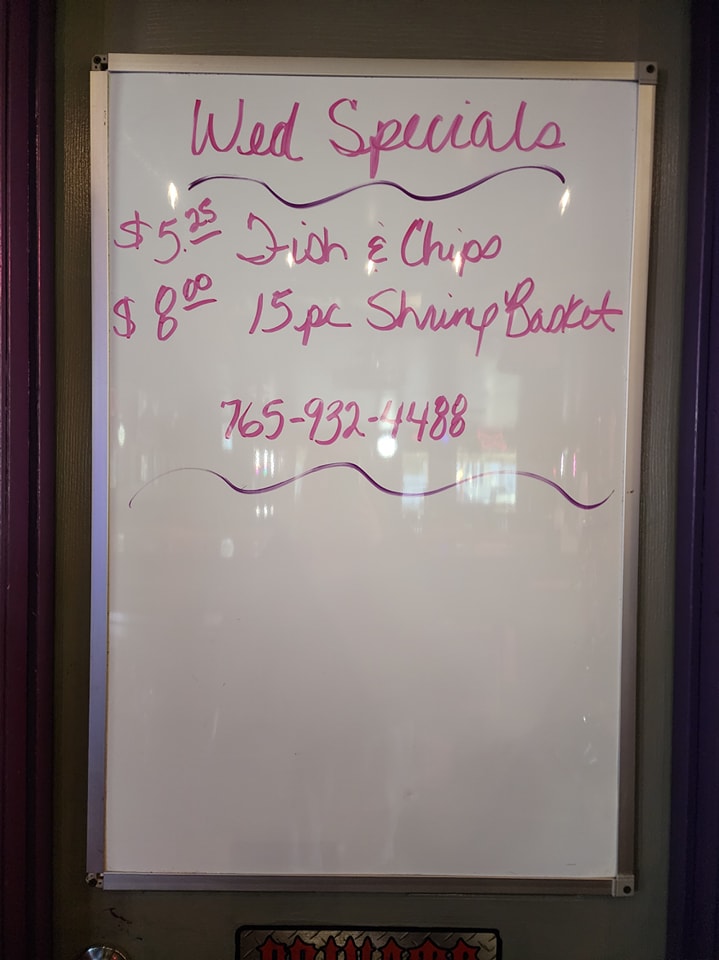 Wed Specials
$5.25 Fish & Chips
$8.00 15pc Shrimp Basket
765-932-4488
PRIVATE